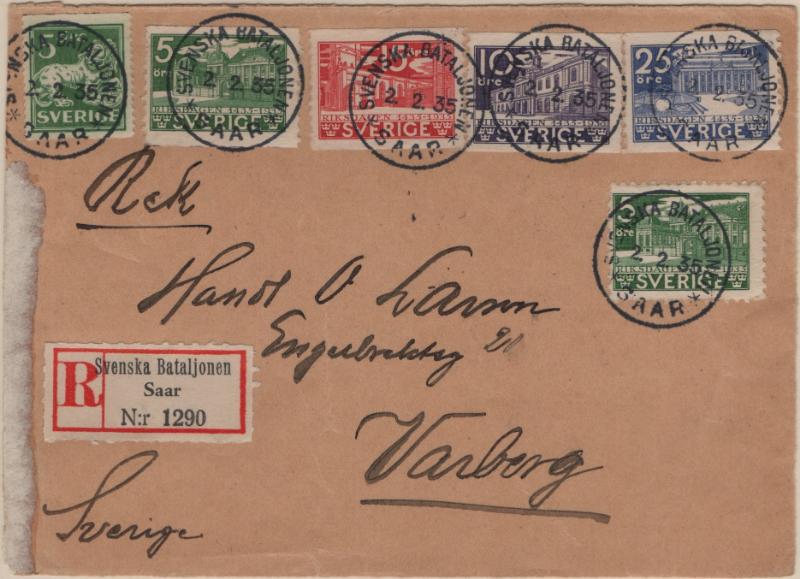 5
SVERIGE
SVENSKA BATALJONEN
2. 2. 35
* SAAR *
5
öre
RIKSDAGEN 1435-1935
SVERIGE
SVENSKA BATALJONEN
2. 2. 35
* SAAR *
15
RIKSDAGEN 1435-1935
SVERIGE
SVENSKA BATALJONEN
2. 2. 35
* SAAR *
10
öre
RIKSDAGEN 1435-1935
SVERIGE
SVENSKA BATALJONEN
2. 2. 35
* SAAR *
25
öre
RIKSDAGEN 1435-1935
SVERIGE
SVENSKA BATALJONEN
2. 2. 35
* SAAR *
5
öre
RIKSDAGEN 1435-1935
SVERIGE
SVENSKA BATALJONEN
2. 2. 35
* SAAR *
Rek
Handl O Larson
Engelbrektsg 20
Varberg
Sverige
R
Svenska Bataljonen
Saar
N:r 1290